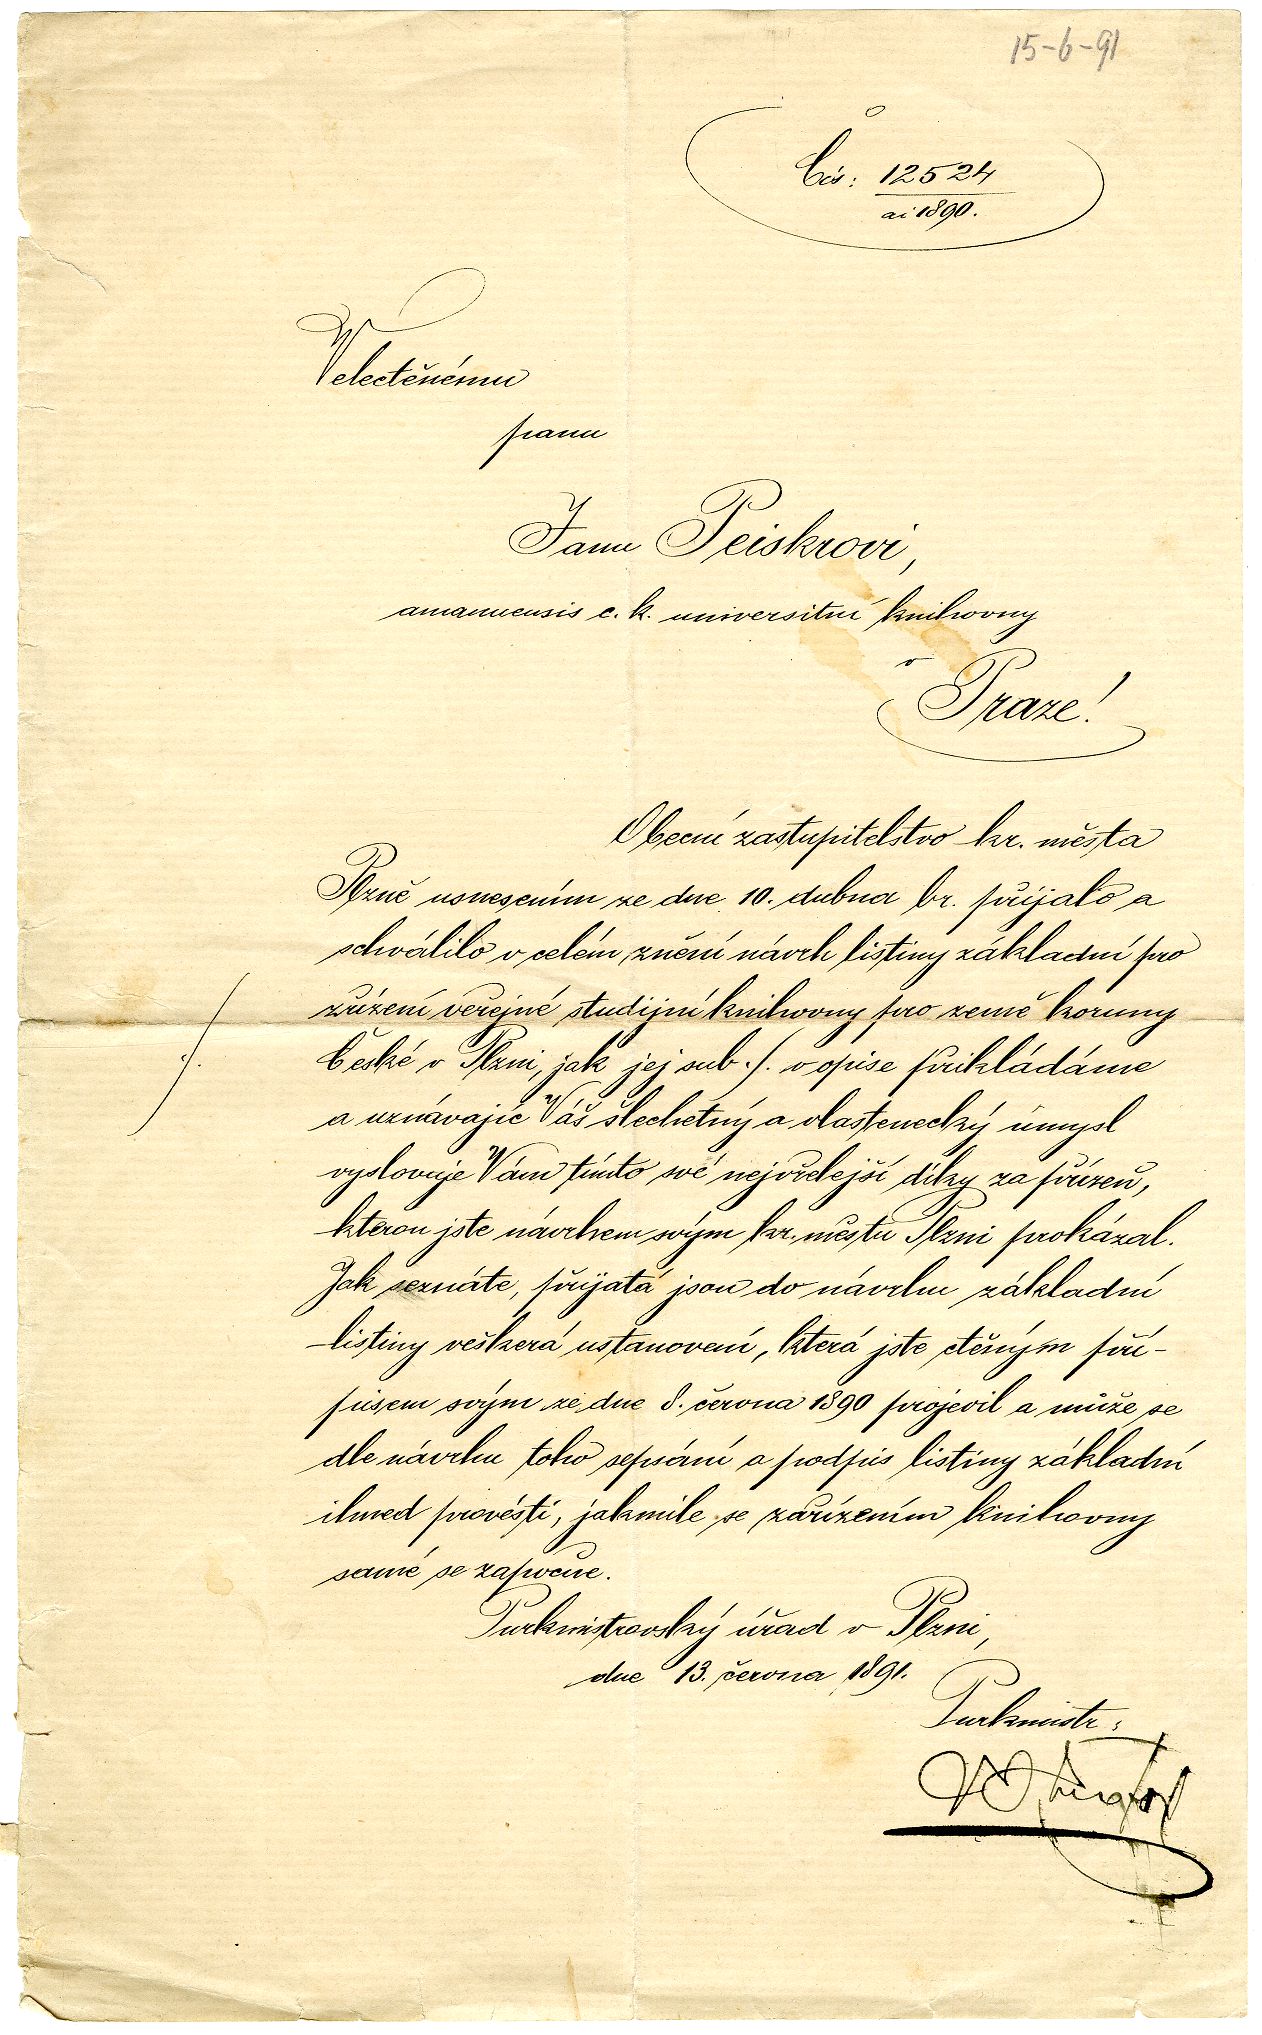 15-6-91
Čís: 12524
ai 1890.
Velectěnému
panu
Janu Peiskrovi,
amanuensis c. k. universitní knihovny
v
Praze!
Obecní zastupitelstvo kr. města
Plzně usnesením ze dne 10. dubna br. přijalo a
schválilo v celém znění návrh listiny základní pro
zřízení veřejné studijní knihovny pro země koruny
České v Plzni, jak jej sub ./. v opise přikládáme
./.
a uznávajíc Váš šlechetný a vlastenecký úmysl
vyslovuje Vám tímto své nejvřelejší díky za přízeň,
kterou jste návrhem svým kr. městu Plzni prokázal.
Jak seznáte, přijata jsou do návrhu základní
listiny veškerá ustanovení, která jste ctěným pří-
pisem svým ze dne 8. června 1890 projevil a může se
dle návrhu toho sepsání a podpis listiny základní
ihned provésti, jakmile se zařízením knihovny
samé se započne.
Purkmistrovský úřad v Plzni,
dne 13. června 1891.
Purkmistr: